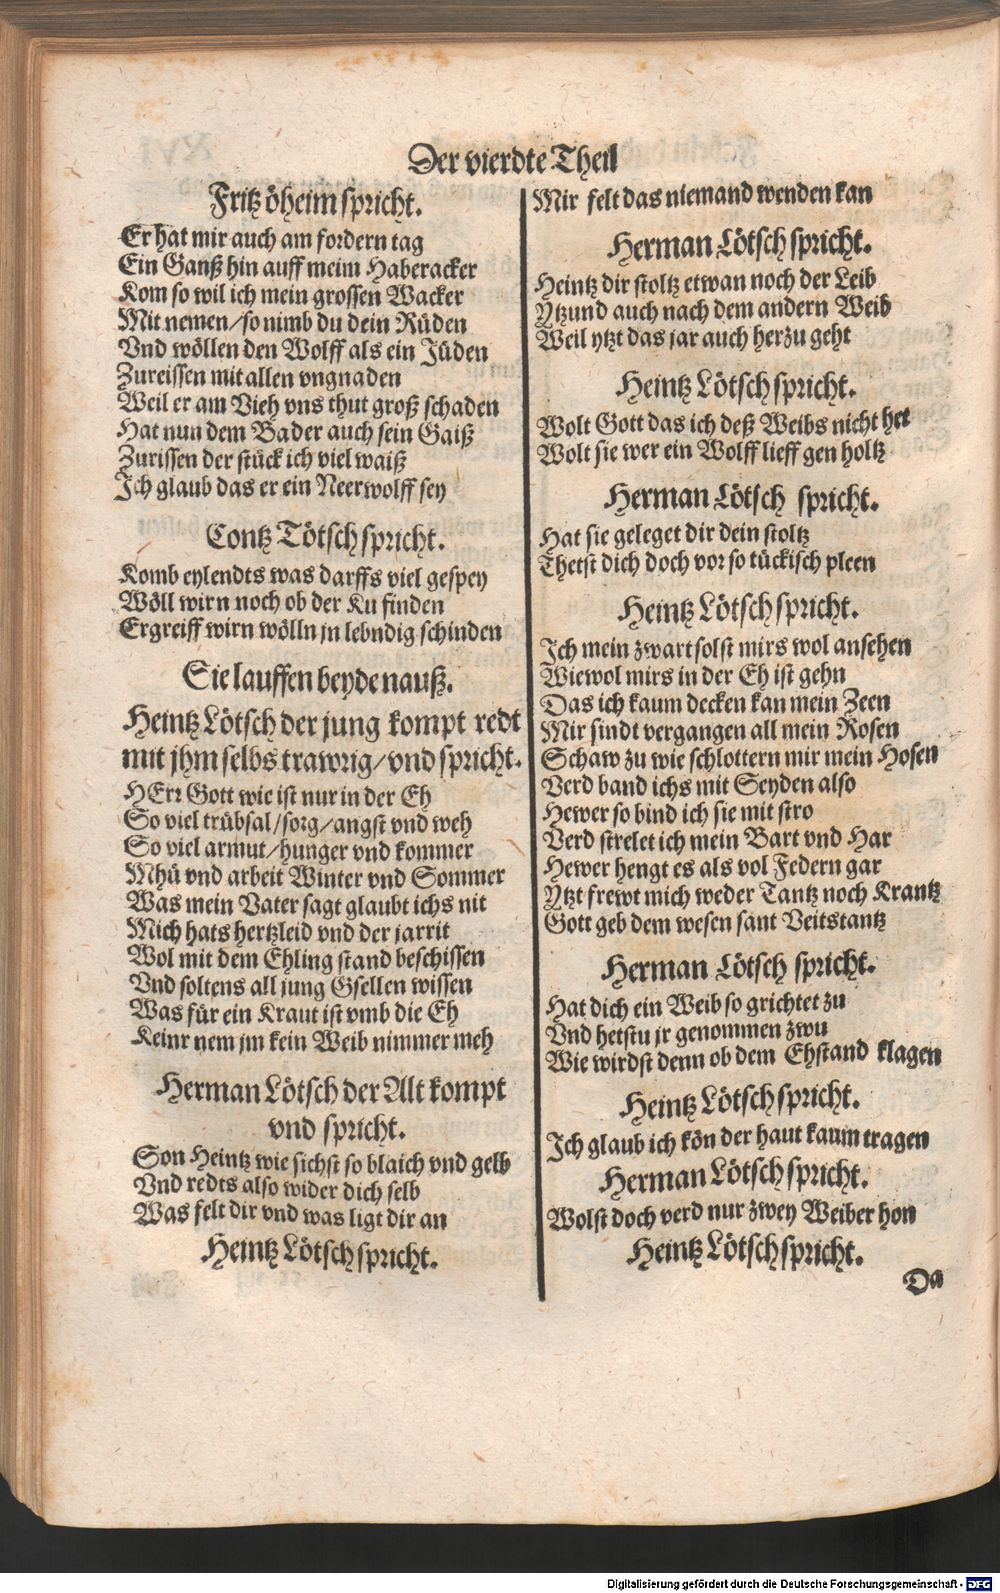 Der vierdte Theil
Fritz öheim spricht.
Er hat mir auch am fordern tag
Ein Ganß hin auff meim Haberacker
Kom so wil ich mein grossen Wacker
Mit nemen/so nimb du dein Rüden
Vnd wöllen den Wolff als ein Jüden
Zureissen mit allen vngnaden
Weil er am Vieh vns thut groß schaden
Hat nun dem Bader auch sein Gaiß
Zurissen der stück ich viel waiß
Ich glaub das er ein Neerwolff sey
Contz Tötsch spricht.
Komb eylendts was darffs viel gespey
Wöll wirn noch ob der Ku finden
Ergreiff wirn wölln jn lebndig schinden
Sie lauffen beyde nauß.
Heintz Lötsch der jung kompt redt
mit jhm selbs trawrig/vnd spricht.
HErr Gott wie ist nur in der Eh
So viel trübsal/sorg/angst vnd weh
So viel armut/hunger vnd kommer
Mhü vnd arbeit Winter vnd Sommer
Was mein Vater sagt glaubt ichs nit
Mich hats hertzleid vnd der jarrit
Wol mit dem Ehling stand beschissen
Vnd soltens all jung Gsellen wissen
Was für ein Kraut ist vmb die Eh
Keinr nem jm kein Weib nimmer meh
Herman Lötsch der Alt kompt
vnd spricht.
Son Heintz wie sichst so blaich vnd gelb
Vnd redts also wider dich selb
Was felt dir vnd was ligt dir an
Heintz Lötsch spricht.
Mir felt das niemand wenden kan
Herman Lötsch spricht.
Heintz dir stoltz etwan noch der Leib
Ytzund auch nach dem andern Weib
Weil ytzt das jar auch herzu geht
Heintz Lötsch spricht.
Wolt Gott das ich deß Weibs nicht het
Wolt sie wer ein Wolff lieff gen holtz
Herman Lötsch spricht.
Hat sie geleget dir dein stoltz
Thetst dich doch vor so tückisch pleen
Heintz Lötsch spricht.
Ich mein zwart solst mirs wol ansehen
Wiewol mirs in der Eh ist gehn
Das ich kaum decken kan mein Zeen
Mir sindt vergangen all mein Rosen
Schaw zu wie schlottern mir mein Hosen
Verd band ichs mit Seyden also
Hewer so bind ich sie mit stro
Verd strelet ich mein Bart vnd Har
Hewer hengt es als vol Federn gar
Ytzt frewt mich weder Tantz noch Krantz
Gott geb dem wesen sant Veitstantz
Herman Lötsch spricht.
Hat dich ein Weib so grichtet zu
Vnd hetstu jr genommen zwu
Wie wirdst denn ob dem Ehstand klagen
Heintz Lötsch spricht.
Ich glaub ich kön der haut kaum tragen
Herman Lötsch spricht.
Wolst doch verd nur zwey Weiber hon
Heintz Lötsch spricht.
Da
Digitalisierung gefördert durch die Deutsche Forschungsgemeinschaft - DFG